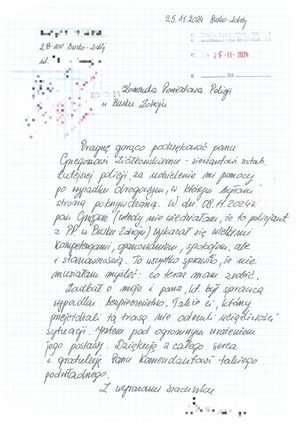 25.11.2024 Busko-Zdrój
28-100 Busko-Zdrój
tel.
25 -11- 2024
Komenda Powiatowa Policji
w Busku Zdroju
Pragnę gorąco podziękować panu
Grzegorzowi Ziółkowskiemu - sierżantowi sztab.
tutejszej policji za udzielenie mi pomocy
po wypadku drogowym, w którym byłam
stroną pokrzywdzoną. W dn. 08.11.2024r.
pan Grzegorz (wtedy nie wiedziałam, że to policjant
z PP w Busku Zdroju) wykazał się wielkimi
kompetencjami, opanowaniem, spokojem, ale
i stanowczością. To wszystko sprawiło, że nie
musiałam myśleć: co teraz mam zrobić.
Zadbał o moje i pana, kt. był sprawcą
wypadku bezpieczeństwo. Także ci, którzy
przejeżdżali tą trasą nie odczuli uciążliwości
sytuacji. Jestem pod ogromnym wrażeniem
jego postawy. Dziękuję z całego serca
i gratuluję Panu Komendantowi takiego
podwładnego.
Z wyrazami szacunku